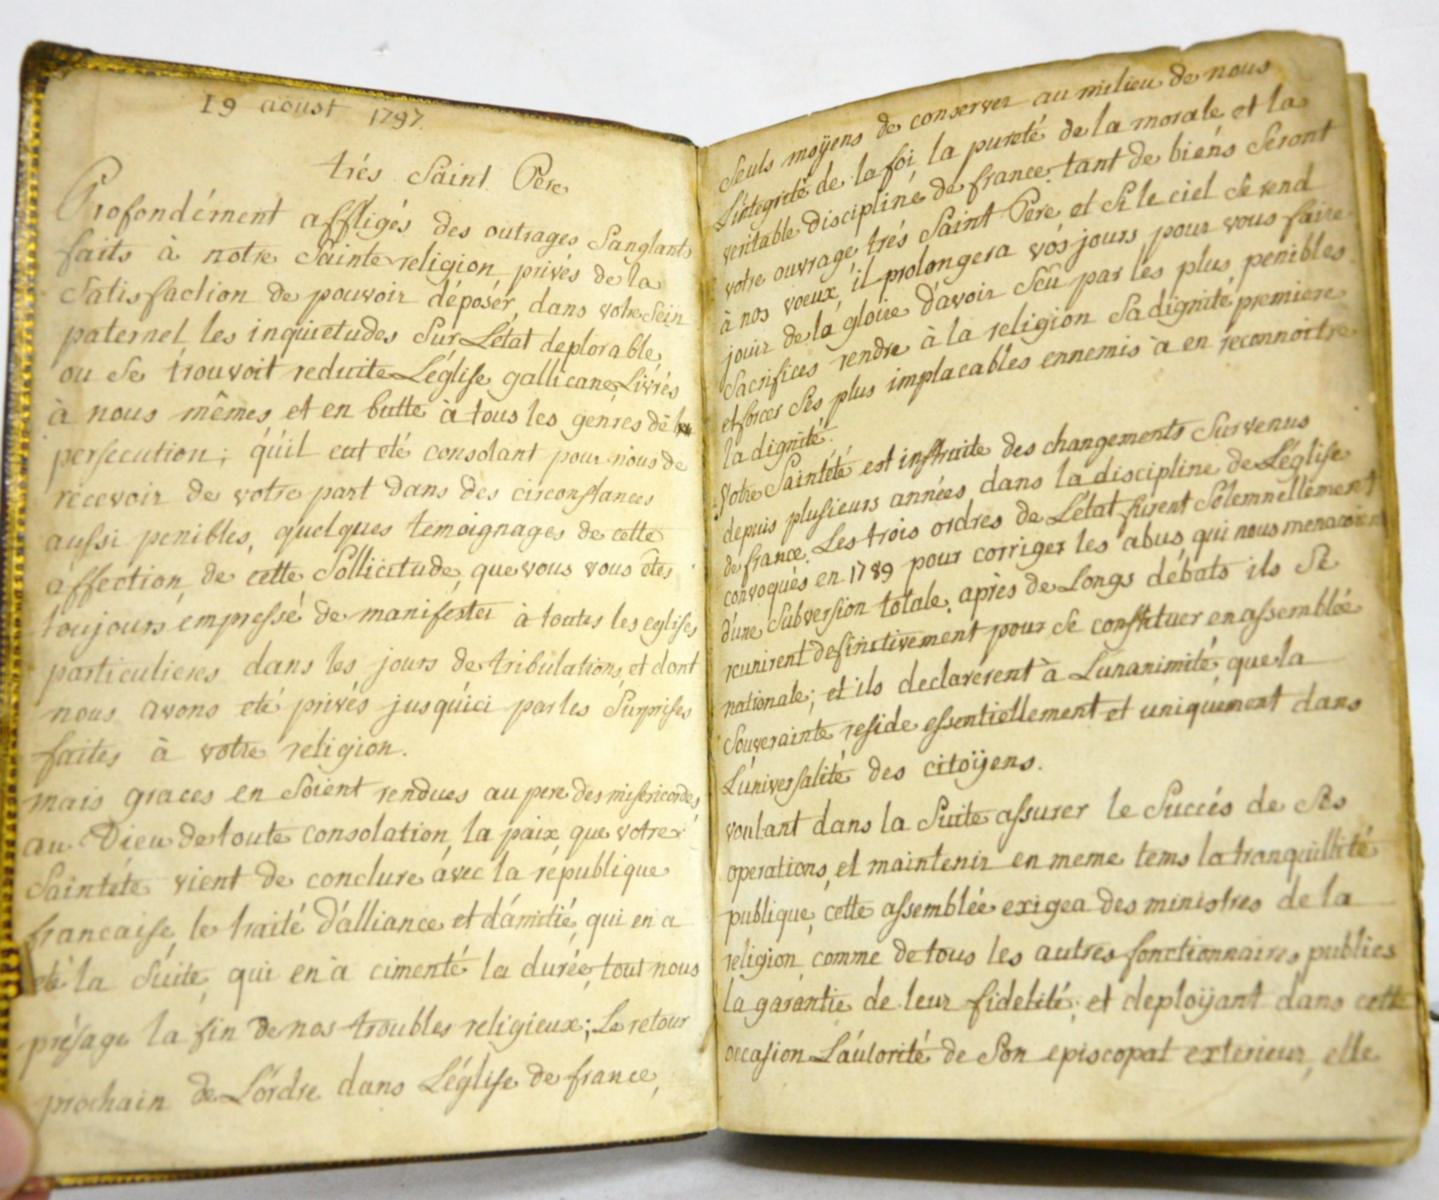 19 aoust 1797.
trés Saint Pere
Profondément affligés des outrages Sanglants
faits à notre Sainte religion, privés de la
Satisfaction de pouvoir déposér, dans votre Sein
paternel, les inquietudes Sur L'état deplorable,
ou Se trouvoit reduite L'église gallicane, Livrés
à nous mêmes, et en butte à tous les genres de
persecution; qu'il eut eté consolant pour nous de
recevoir de votre part dans des circonstances
aussi penibles, quelques temoignages de cette
affection, de cette Sollicitude, que vous vous êtes
toujours empressé de manifester à toutes les eglises
particulieres dans les jours de tribulations, et dont
nous avons eté privés jusqu'ici par les Surprises
faites à votre religion.
mais graces en Soient rendues au pere des misericordes
au Dieu de toute consolation, la paix, que votre
Saintété vient de conclure avec la république
francaise, le traité d'alliance et d'amitié, qui en a
eté la Suite, qui en a cimenté la durée, tout nous
présage la fin de nos troubles religieux; Le retour
prochain de L'órdre dans L'église de france,
Seuls moÿens de conserver au milieu de nous
L'intégrité de la foi, la pureté de la morale et la
veritable discipline de france. tant de biens Seront
votre ouvrage trés Saint Pere, et Si le ciel Se rend
à nos voeux, il prolongera vós jours, pour vous faire
jouir de la gloire d'avoir Scu par les plus penibles
Sacrifices rendre à la religion Sa dignité premiere
et forcer Ses plus implacables ennemis à en reconnoitre
la dignité.
Votre Saintété est instruite des changements Survenus
depuis plusieurs années dans la discipline de L'église
de france. Les trois ordres de L'état furent Solemnellement
convoqués en 1789 pour corriger les abus qui nous menacoient
d'une Subversion totale. après de Longs débats ils Se
reunirent definitivement pour Se constituer en assemblée
nationale; et ils declarérent à L'unanimité, que la
Souverainte reside essentiellement et uniquement dans
L'universalité des citoÿens.
voulant dans la Suite assurer le Succés de Ses
operations, et maintenir en meme tems la tranquillité
publique, cette assemblée exigea des ministres de la
religion, comme de tous les autres fonctionnaires publics
la garantie de leur fidelité; et deploÿant dans cette
occasion L'áutorité de Son episcopat exterieur, elle